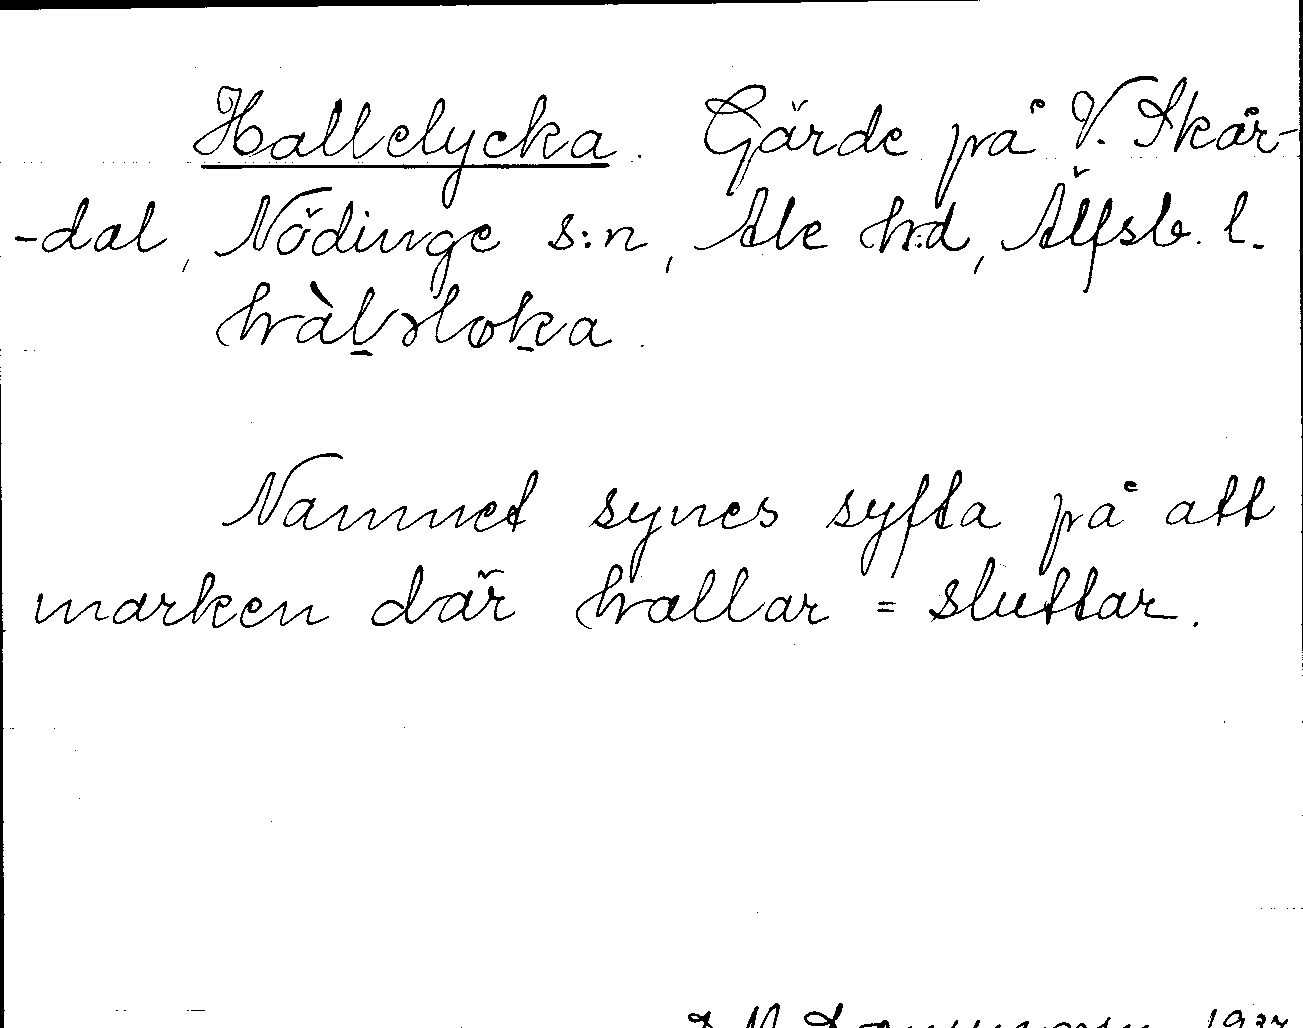 Hallelycka. Gärde på V. Skår-
-dal, Nödinge s:n, Ale h:d, Älfsb. l.
hàl̠ɔlok̠a.

Namnet synes syfta på att
marken där hallar = sluttar.